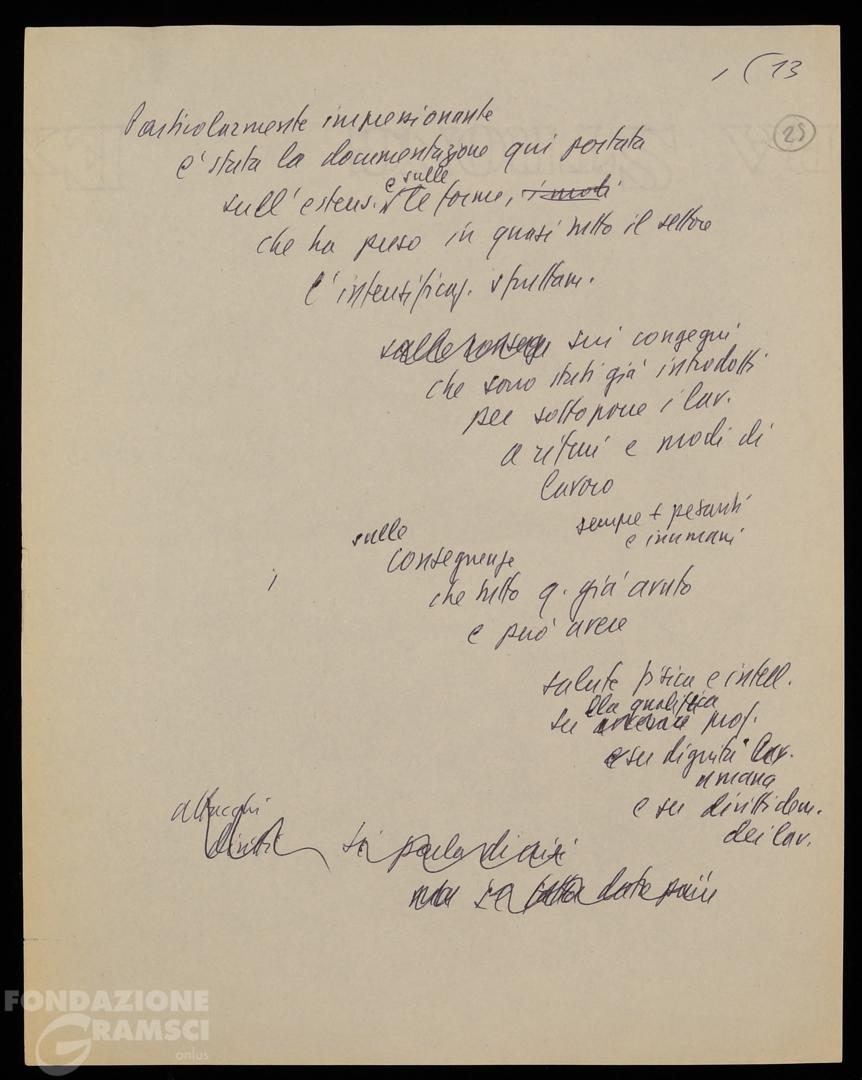 1 ( 13
25
Particolarmente impressionante
è stata la documentazione qui portata
e sulle
sull'estens. le forme, i modi
che ha preso in quasi tutto il settore
l'intensificaz. sfruttam.
sulle conseg sui congegni
che sono stati già introdotti
per sottoporre i lav.
a ritmi e modi di
lavoro
sempre + pesanti
e inumani
sulle
conseguenze
che tutto q. già avuto
e può avere
salute fisica e intell.
lla qualifica
su prof.
e su dignità lav.
umana
e su diritti dem.
dei lav.
attacchi
diritti si parla di crisi
ma se
FONDAZIONE
GRAMSCI
onlus